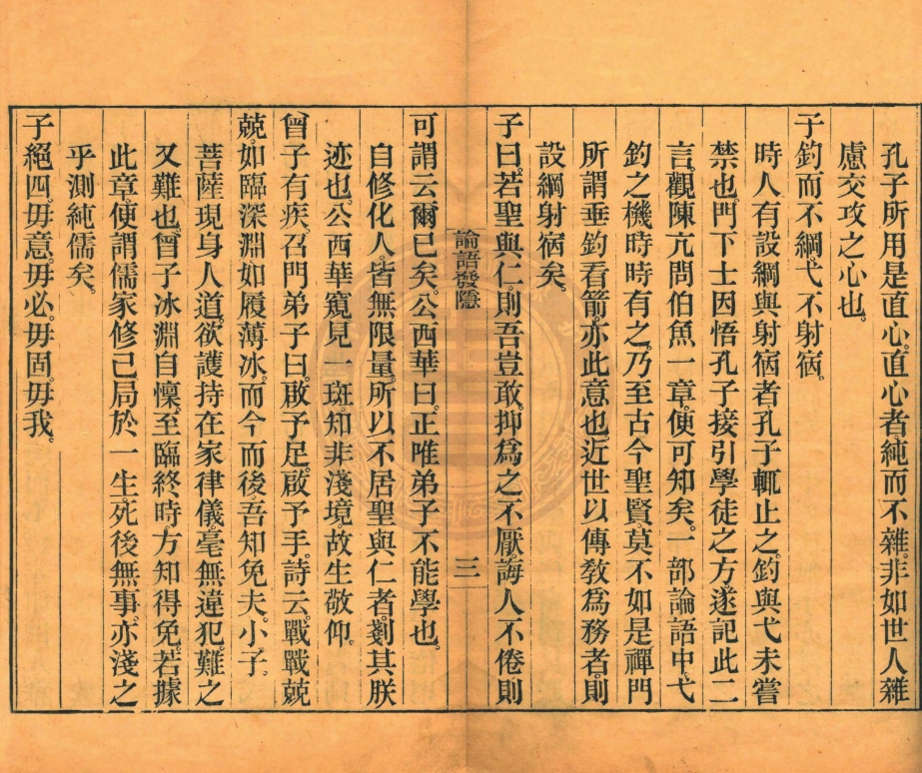 孔子所用是直心。直心者純而不雜。非如世人雜
慮交攻之心也。
子釣而不綱。弋不射宿。
時人有設綱與射宿者。孔子輒止之。釣與弋未嘗
禁也。門下士因悟孔子接引學徒之方。遂記此二
言。觀陳亢問伯魚一章。便可知矣。一部論語中。弋
釣之機。時時有之。乃至古今聖賢。莫不如是。禪門
所謂垂釣看箭。亦此意也。近世以傳敎爲務者。則
設綱射宿矣。
子曰。若聖與仁。則吾豈敢。抑爲之不厭。誨人不倦。則
論語發隱
三
可謂云爾已矣。公西華曰。正唯弟子不能學也。
自修化人。皆無限量。所以不居聖與仁者。剗其朕
迹也。公西華窺見一斑。知非淺境。故生敬仰。
曾子有疾。召門弟子曰。啟予足。啟予手。詩云。戰戰兢
兢。如臨深淵。如履薄冰。而今而後。吾知免夫。小子。
菩薩現身人道。欲護持在家律儀。毫無違犯。難之
又難也。曾子冰淵自懍。至臨終時。方知得免。若據
此章。便謂儒家修己局於一生。死後無事。亦淺之
乎測純儒矣。
子絕四。毋意。毋必。毋固。毋我。